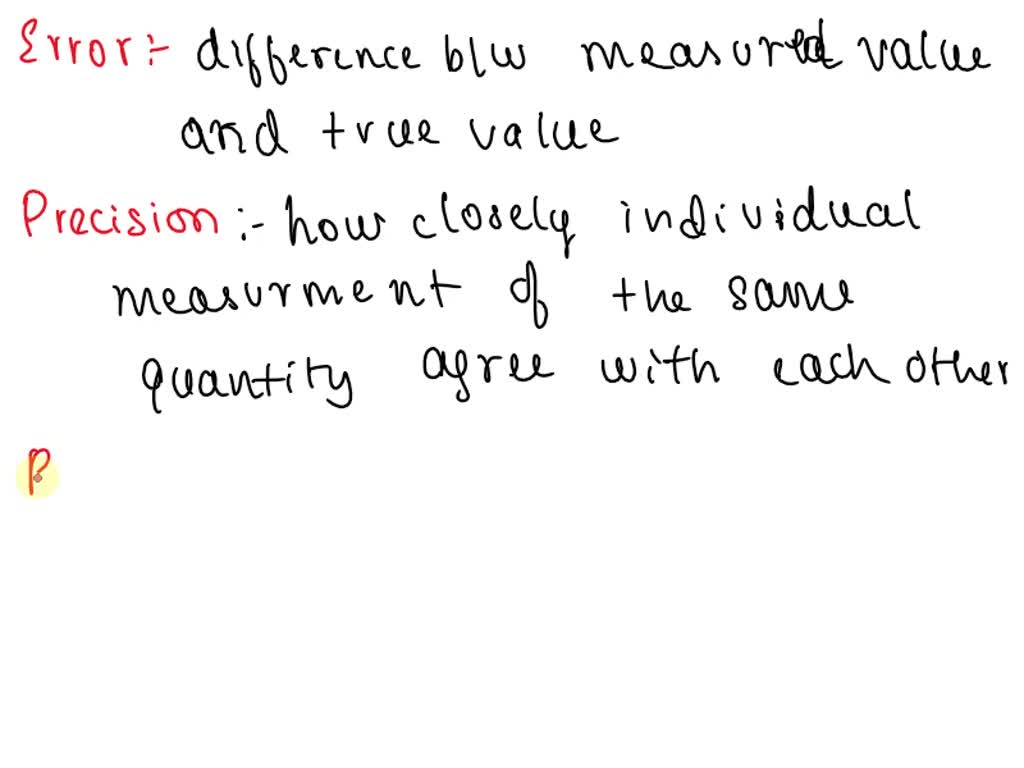 Error:- difference b/w measured value
and true value
Precision:- how closely individual
measurment of the same
quantity agree with each other
P